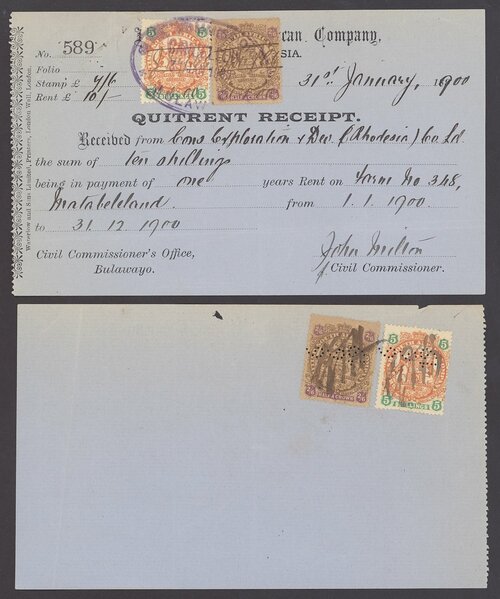 ican Company,
No. 589 SIA.
Folio
Stamp £ 7/6 31st January, 1900
Rent £ 10/-
QUITRENT RECEIPT.
Received from Cons Exploration & Dev. (Rhodesia) Co Ld
the sum of ten shillings
being in payment of one years Rent on Farm No 348,
Matabeleland from 1.1.1900.
to 31.12.1900
Civil Commissioner's Office, John Milton
Bulawayo. Civil Commissioner.
Waterlow and Sons Limited, Printers, London Wall, London.
5 5
5 5
2/6 2/6
HALF A CROWN
5 5
5 SHILLINGS 5